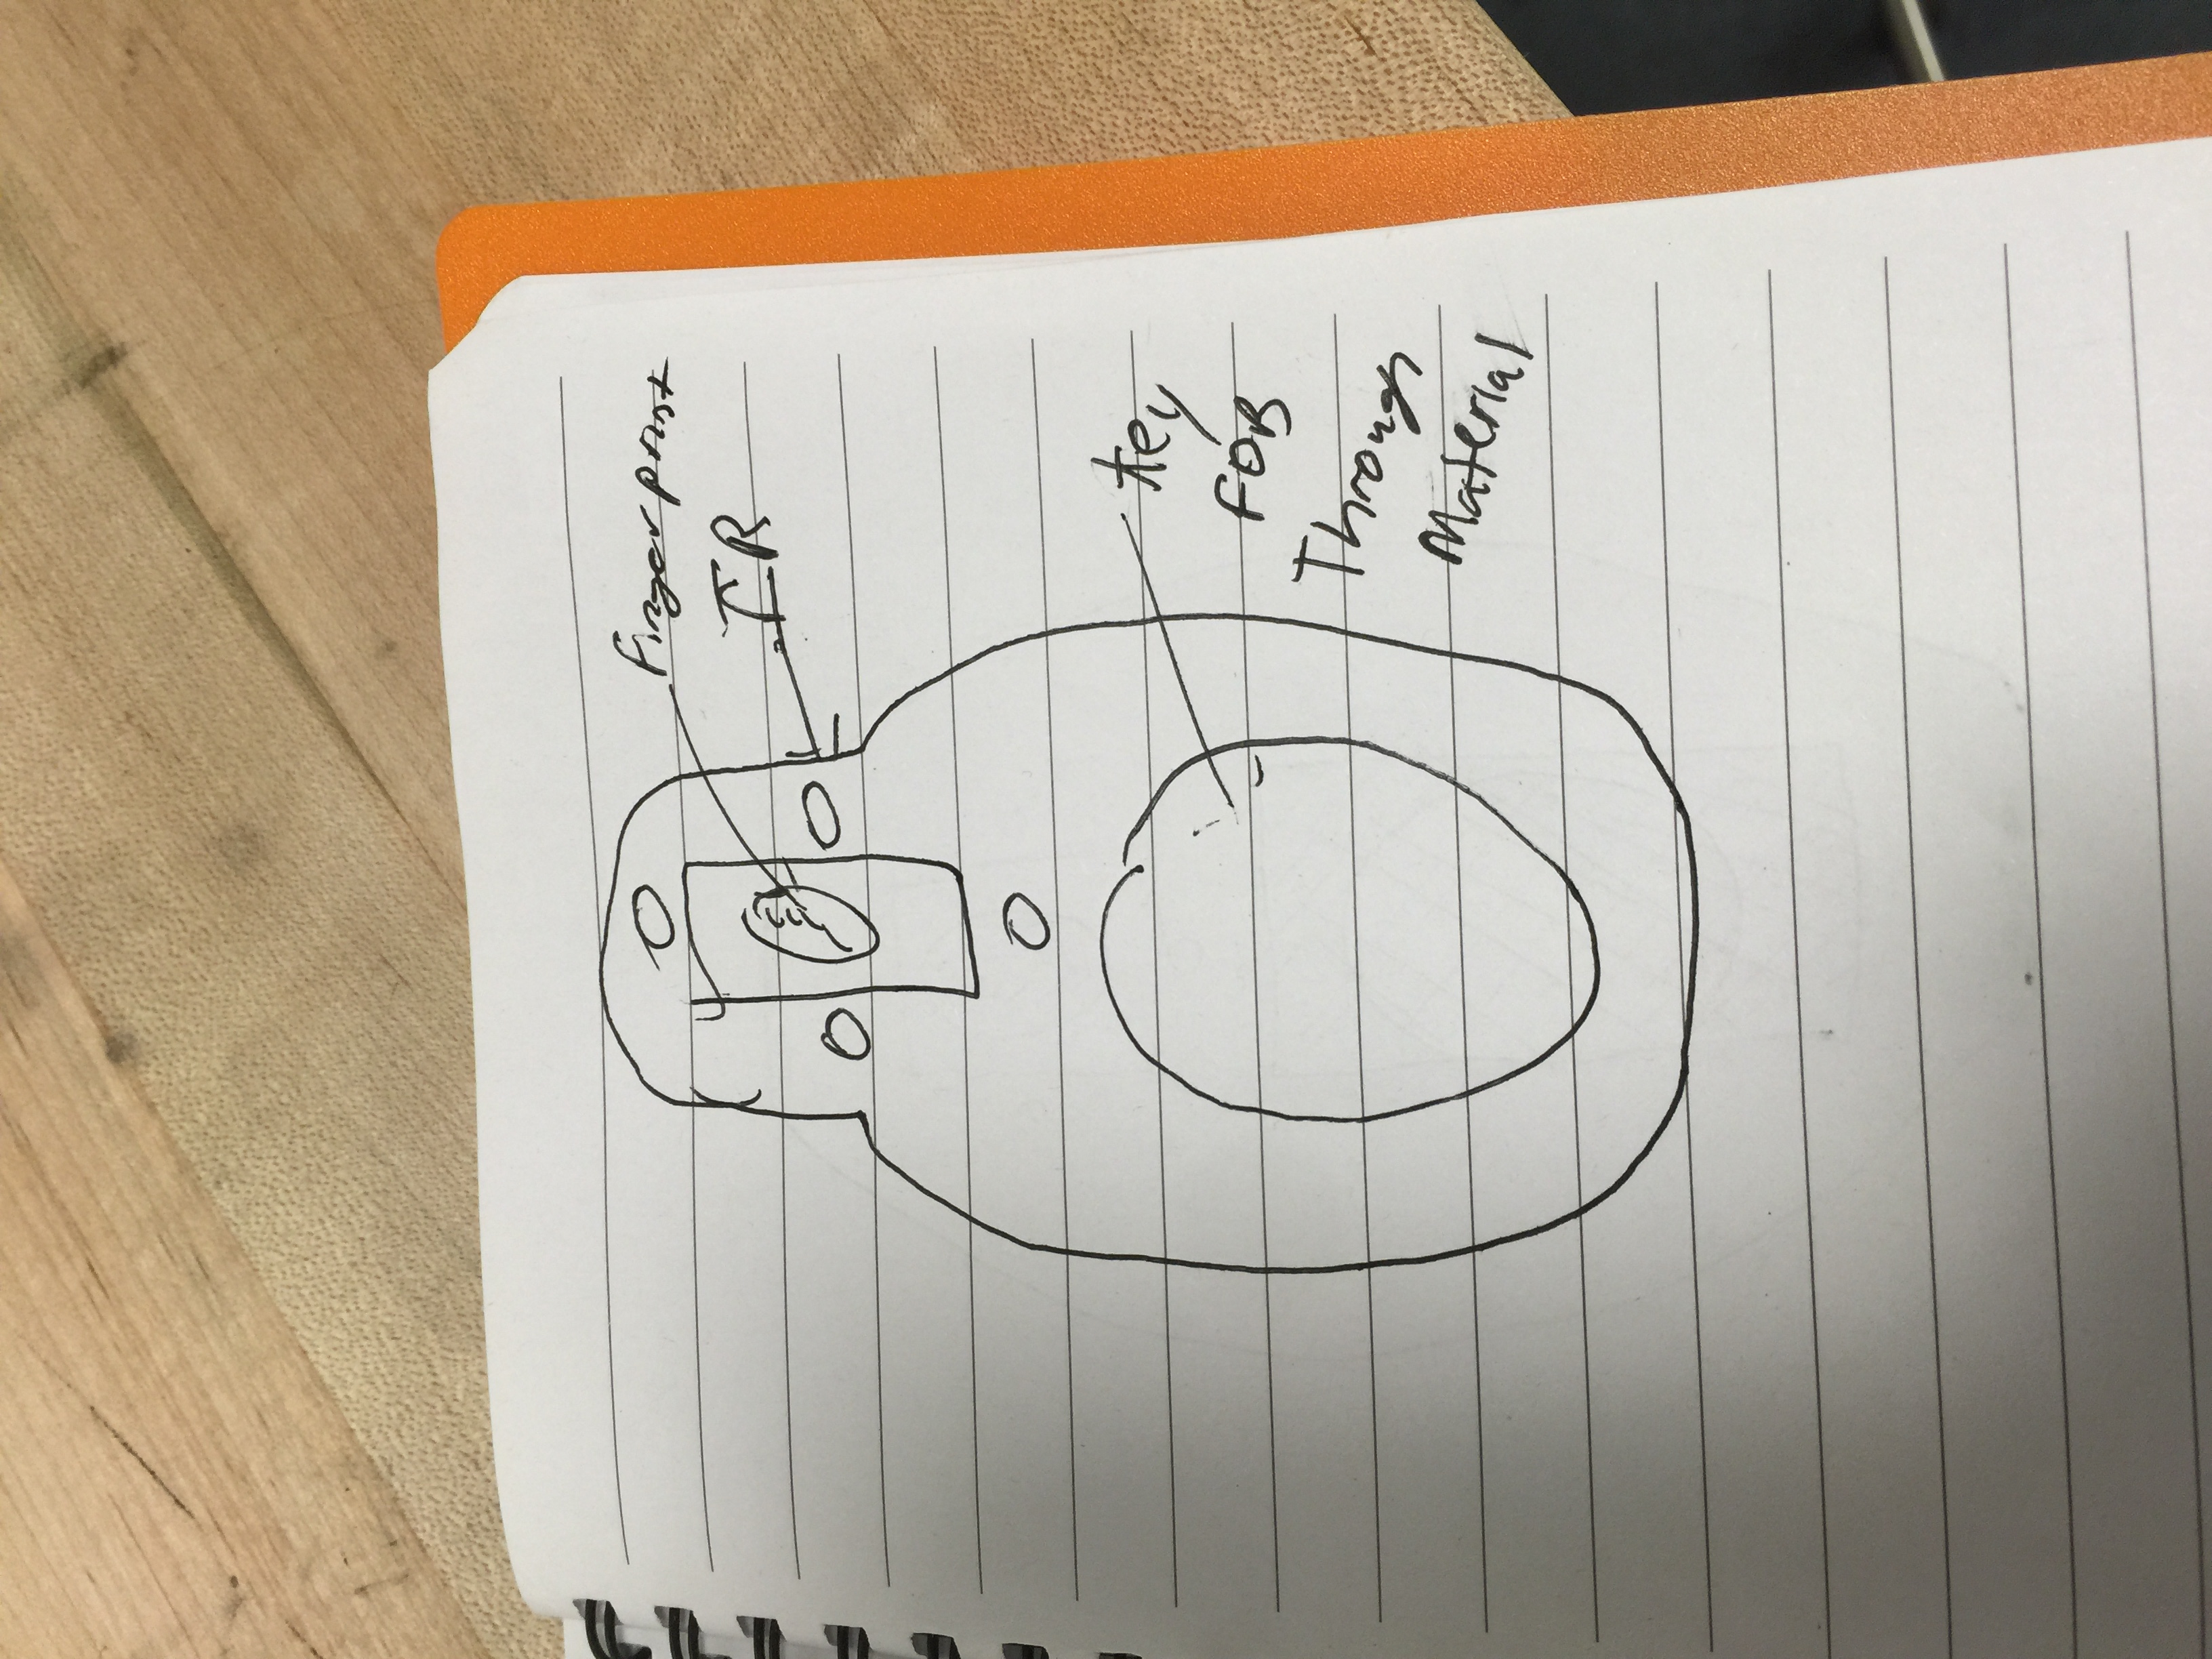 Fingerprint
IR
Key
FOB
Through
Material